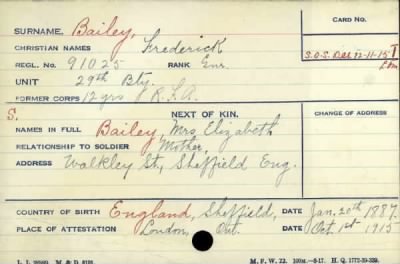 CARD No.
SURNAME. Bailey,
CHRISTIAN NAMES Frederick
REGL. No. 91025 RANK Gnr. S.O.S. Dec 12-11-15
UNIT 29th Bty.
FORMER CORPS 12 yrs R.F.A.
S. NEXT OF KIN. CHANGE OF ADDRESS
NAMES IN FULL Bailey, Mrs Elizabeth
RELATIONSHIP TO SOLDIER Mother,
ADDRESS Walkley St, Sheffield Eng.
COUNTRY OF BIRTH England, Sheffield, DATE Jan. 20th 1887.
PLACE OF ATTESTATION London, Ont. DATE Oct 1st 1915
M. F. W. 22. 100M.-6-17. H. Q. 1772-39-339.